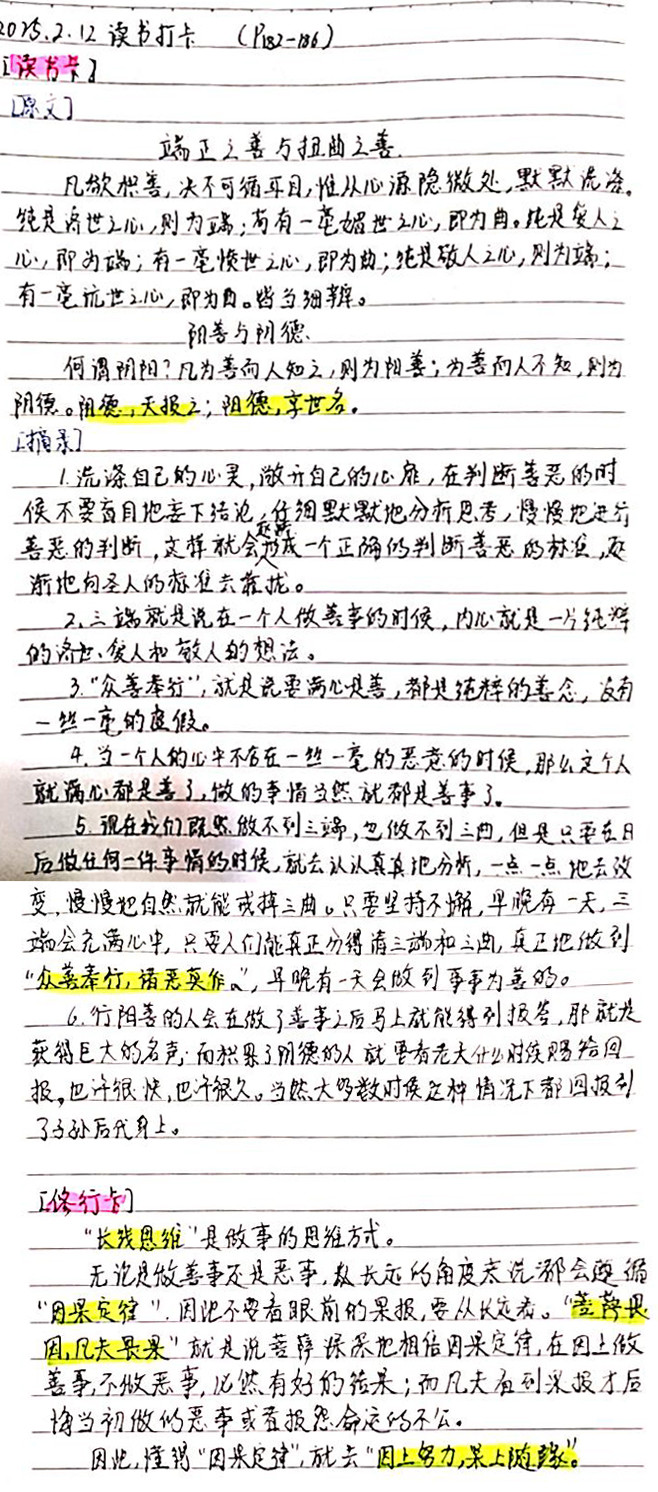 2025.2.12 读书打卡 (P182-186)
[读书卡]
[原文]
端正之善与扭曲之善.
凡欲积善,决不可循耳目,惟从心源隐微处,默默洗涤。
纯是济世之心,则为端;苟有一毫媚世之心,即为曲。纯是爱人之
心,即为端;有一毫愤世之心,即为曲;纯是敬人之心,则为端;
有一毫玩世之心,即为曲。皆当细辨。
阳善与阴德.
何谓阴阳?凡为善而人知之,则为阳善;为善而人不知,则为
阴德。阴德,天报之;阳德,享世名。
[摘录]
1.洗涤自己的心灵,敞开自己的心扉,在判断善恶的时
候不要盲目地妄下结论,仔细默默地分析思考,慢慢地进行
善恶的判断,这样就会形成一个正确的判断善恶的标准,逐
渐地向圣人的标准去靠拢。
2.三端就是说在一个人做善事的时候,内心就是一片纯粹
的济世、爱人和敬人的想法。
3.“众善奉行”,就是说要满心是善,都是纯粹的善念,没有
一丝一毫的虚假。
4.当一个人的心中不存在一丝一毫的恶意的时候,那么这个人
就满心都是善了,做的事情当然就都是善事了。
5.现在我们既然做不到三端,也做不到三曲,但是只要在日
后做任何一件事情的时候,就去认认真真地分析,一点一点地去改
变,慢慢地自然就能戒掉三曲。只要坚持不懈,早晚有一天,三
端会充满心中,只要人们能真正分得清三端和三曲,真正地做到
“众善奉行,诸恶莫作。”,早晚有一天会做到事事为善的。
6.行阳善的人会在做了善事之后马上就能得到报答,那就是
获得巨大的名声.而积累了阴德的人就要看老天什么时候赐给回
报。也许很快,也许很久。当然大多数时候这种情况下都回报到
了子孙后代身上。
[修行卡]
“长线思维”是做事的思维方式。
无论是做善事还是恶事,从长远的角度来说都会遵循
“因果定律”.因此不要看眼前的果报,要从长远看。“菩萨畏
因,凡夫畏果”就是说菩萨深深地相信因果定律,在因上做
善事,不做恶事,必然有好的结果;而凡夫看到果报才后
悔当初做的恶事或者报怨命定的不公。
因此,懂得“因果定律”,就去“因上努力,果上随缘”。